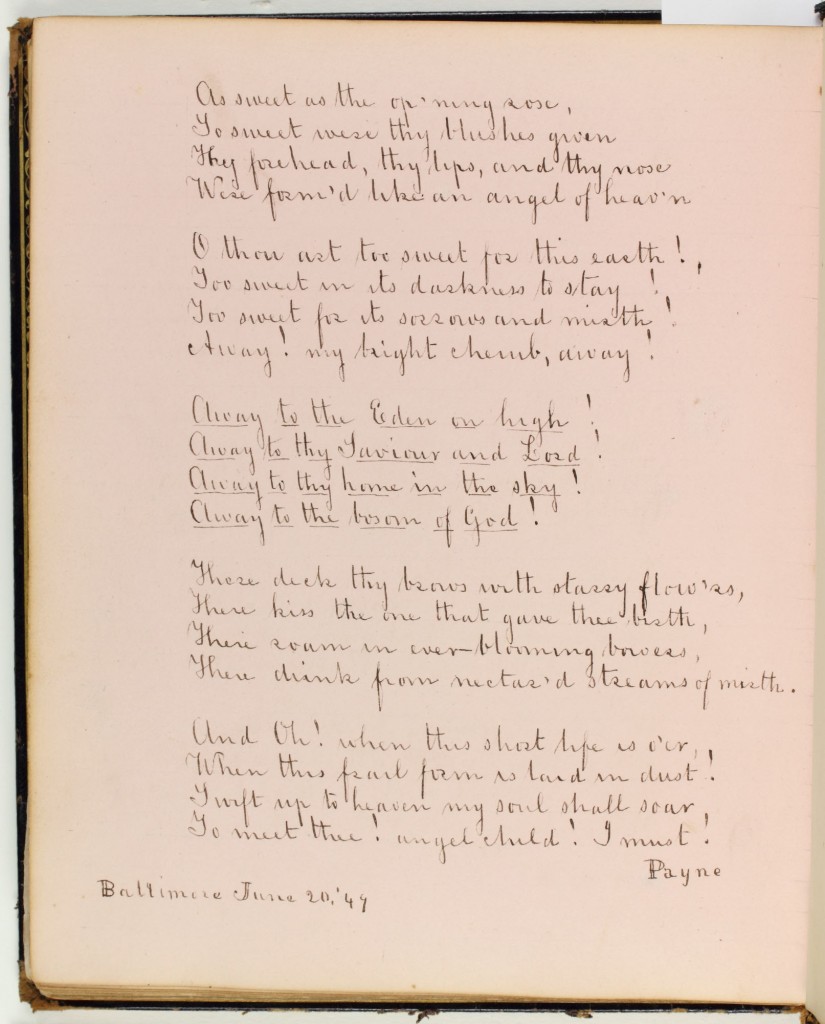 As sweet as the op'ning rose,
So sweet were thy blushes given
Thy forehead, thy lips, and thy nose
Were form'd like an angel of heav'n
O thou art too sweet for this earth!,
Too sweet in its darkness to stay !,
Too sweet for its sorrows and mirth !
Away! my bright cherub, away !
Away to the Eden on high !
Away to thy Saviour and Lord !
Away to thy home in the sky !
Away to the bosom of God !
There deck thy brows with starry flow'rs,
There kiss the one that gave thee birth,
There roam in ever-blooming bowers,
There drink from nectar'd streams of mirth.
And Oh! when this short life is o'er,,
When this frail form is laid in dust !
Swift up to heaven my soul shall soar,
To meet thee! angel child! I must !
Payne
Baltimore June 20,'49